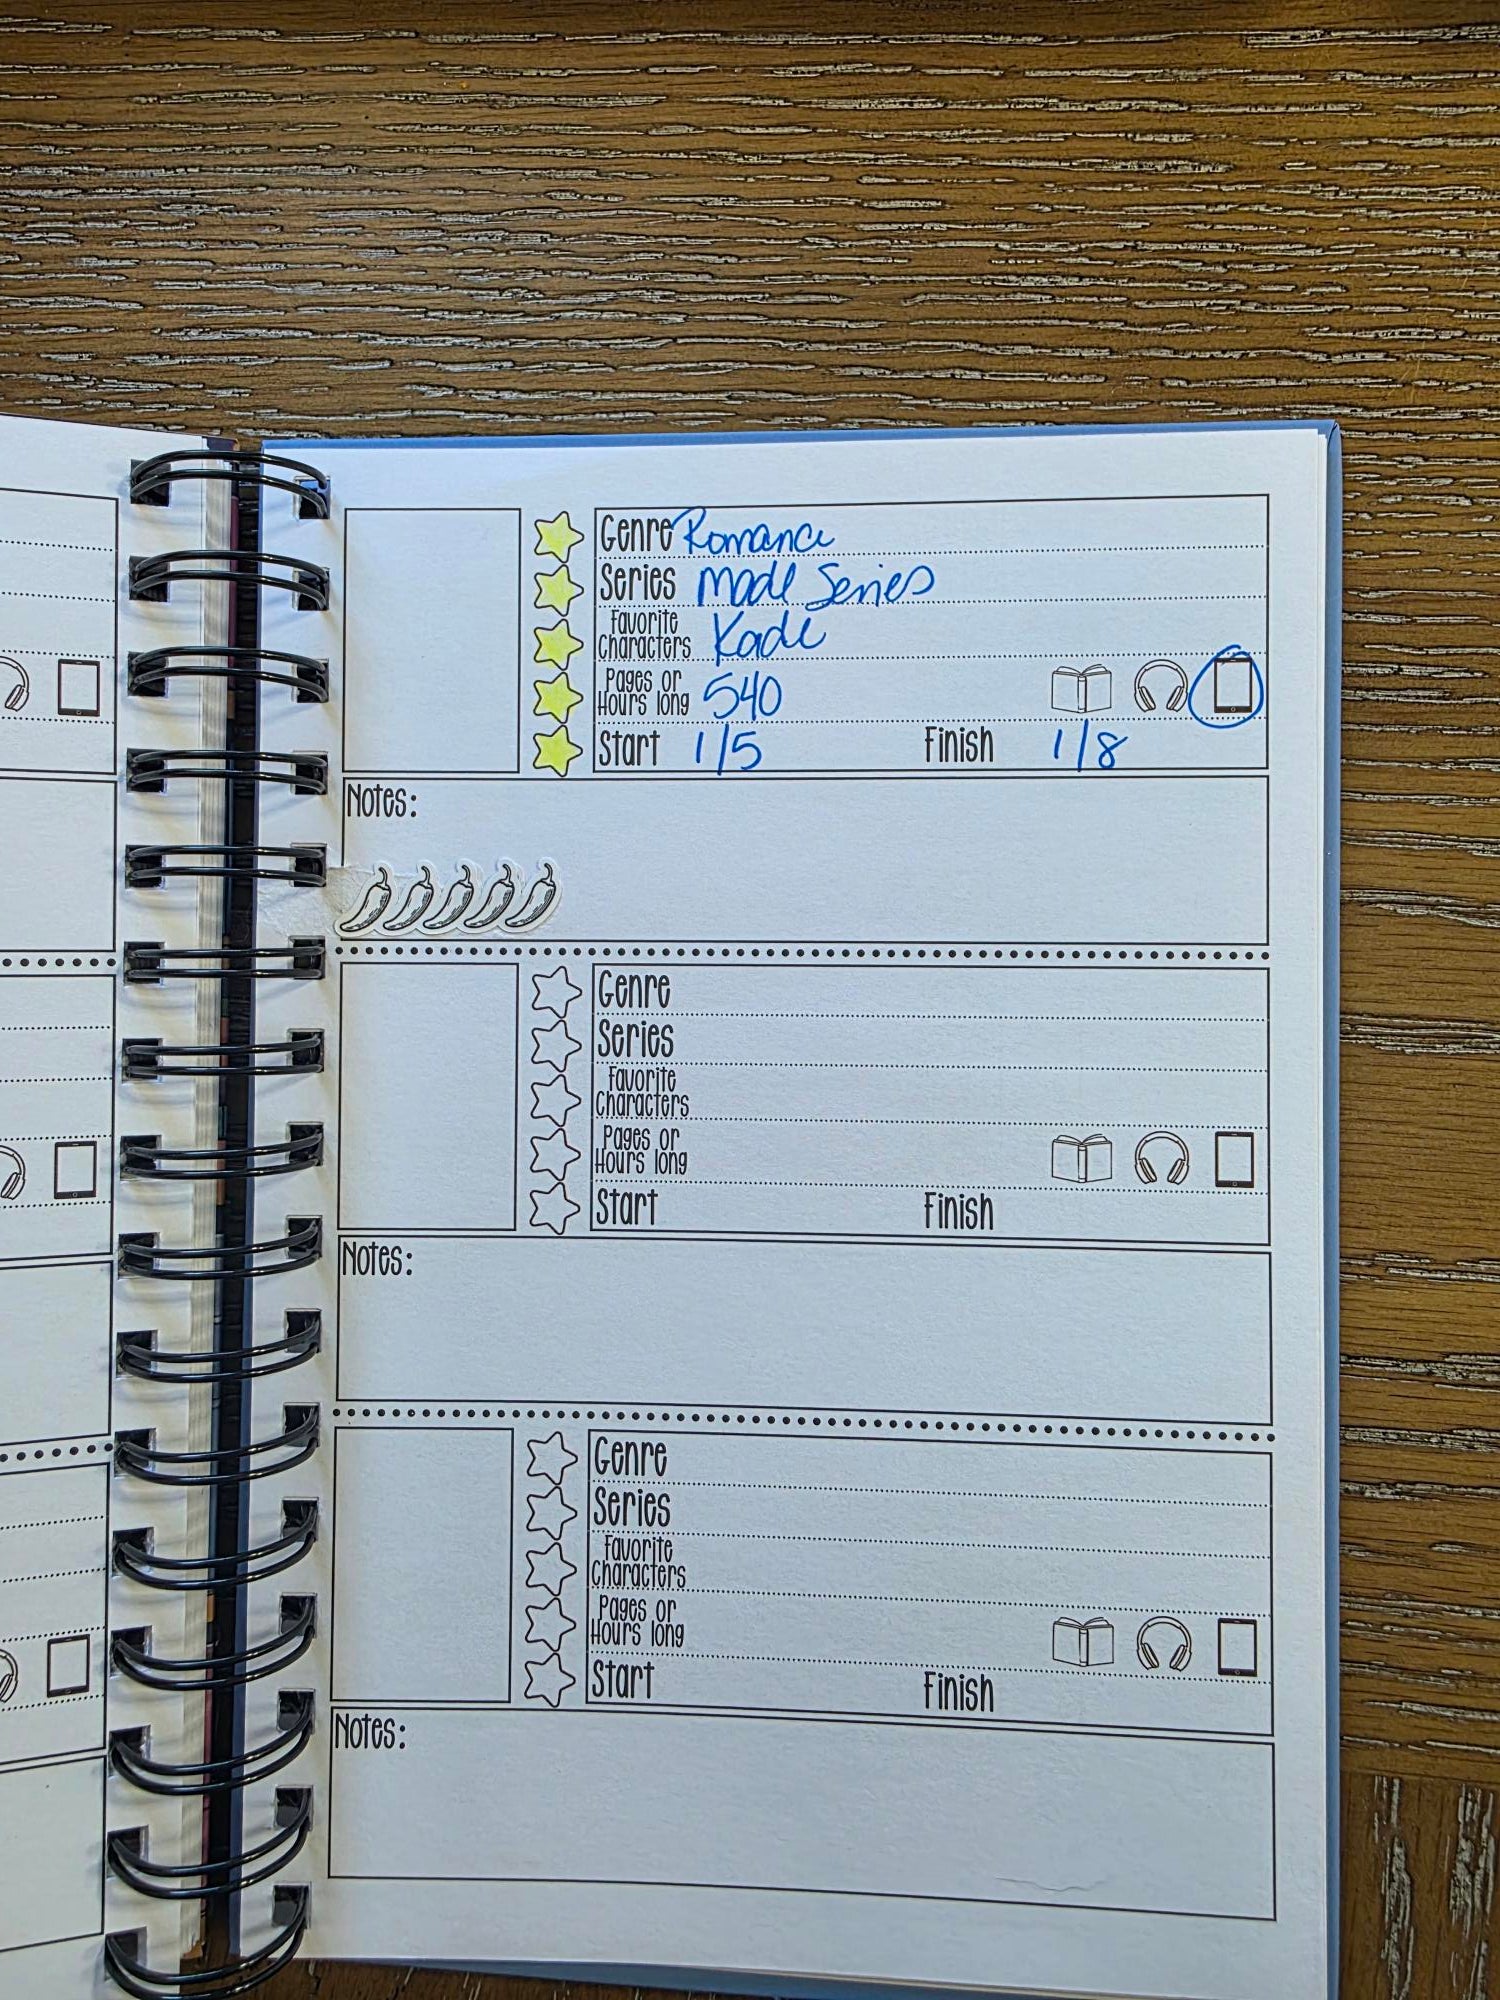 Genre Romance
Series Made Series
Favorite
Characters Kade
Pages or
Hours long 540
Start 1/5 Finish 1/8
Notes:
Genre
Series
Favorite
Characters
Pages or
Hours long
Start Finish
Notes:
Genre
Series
Favorite
Characters
Pages or
Hours long
Start Finish
Notes: